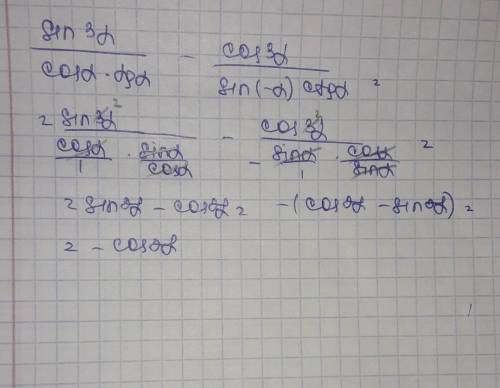 sin³α / (cosα · tgα) - cos³α / (sin(-α) ctgα) =
= sin³α² / (cosα/1 · sinα/cosα) - cos³α² / (- sinα/1 · cosα/sinα) =
= sin²α - cos²α = -(cos²α - sin²α) =
= - cos2α